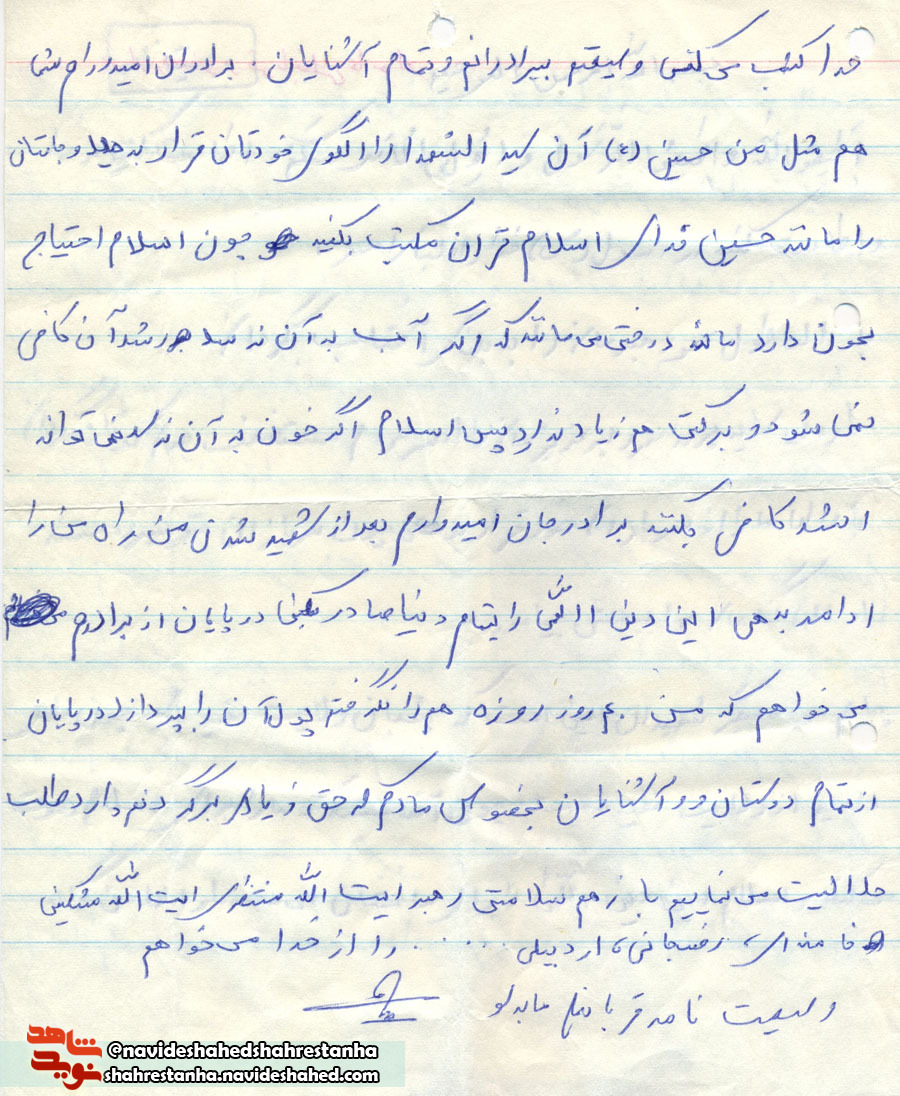 خدا کتب می کنی وصیتم ببرادرانم و تمام آشنایان. برادران امیدورام شما
هم مثل من حسین (ع) آن سید الشهدا را الگوی خودتان قرار بدهید و جانتان
را مانند حسین فدای اسلام قران مکتب بکنید چون اسلام احتیاج
بخون دارد مانند درختی می مانند که اگر آب به آن نرسد رشد آن کافی
نمی شود و برکتی هم زیاد ندارد پس اسلام اگر خون به آن نرسد نمی تواند
رشد کافی بکند برادر جان امیدوارم بعد از شهید شدن من راه من را
ادامه بدهی این دین االلهی را بتمام دنیا صادر بکنی در پایان از برادرم
می خواهم که من ۴۰ روز روزه هم را نگرفته پول آن را بپردازد در پایان
از تمام دوستان و و آشنایان بخصوص مادرم که حق زیادی برگردنم دارد طلب
حلالیت می نماییم باز هم سلامتی رهبر ایت الله منتظری ایت الله مشکینی
خامنه ای، رفسجانی، اردبیلی ..... را از خدا می خواهم
وصیت نامه قربانعلی
شاهد
نوید
@navideshahedshahrestanha
shahrestanha.navideshahed.com